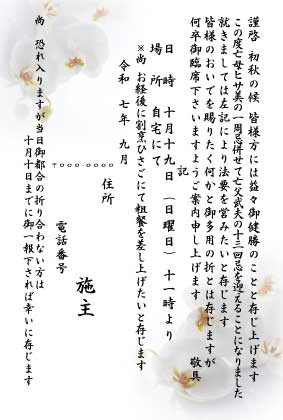 謹啓 初秋の候 皆様方には益々御健勝のことと存じ上げます
この度亡母ヒサ美の一周忌併せて亡父武夫の十三回忌を迎えることになりました
就きましては左記により法要を営みたいと存じます
皆様のおいでを賜りたく何かと御多用の折とは存じますが
何卒御臨席下さいますようご案内申し上げます
敬具
記
日 時 十月十九日(日曜日)十一時より
場 所 自宅にて
※尚 お経後に割烹ひさごにて粗餐を差し上げたいと存じます
令和 七年 九月
〒○○○-○○○○
住所
施主
電話番号
尚 恐れ入りますが当日御都合の折り合わない方は
十月十日までに御一報下されば幸いに存じます